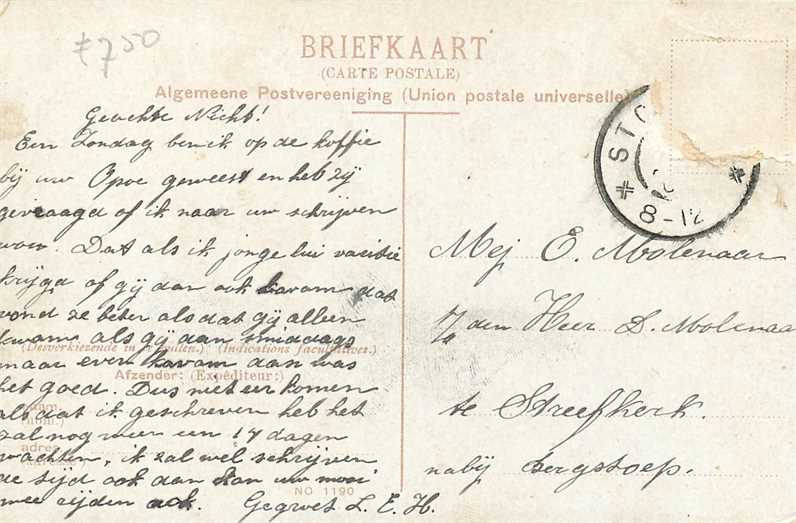 ≠750
BRIEFKAART
(CARTE POSTALE)
Algemeene Postvereeniging (Union postale universelle)
STO
8-12
Geachte Nicht!
Een Zondag ben ik op de koffie
bij uw Opoe geweest en heb zij
gevraagd of ik naar uw schrijven
wou. Dat als ik jonge lui visitie
krijgd of gij dan ook kwam dat
vond ze beter als dat gij alleen
kwam als gij dan smiddags
(Desverkiezende in te vullen.) (Indications facultatives.)
maar even kwam dan was
Afzender: (Expéditeur:)
het goed. Dus niet eer komen
als dat ik geschreven heb het
naam
(nom.)
zal nog weer een 14 dagen
adres
wachten, ik zal wel schrijven
de tijd ook dan kan uw mooi
mee rijden ook. Gegroet L. E. H.
NO 1190
Mej E. Molenaar
p/a den Heer D. Molenaa
te Streefkerk.
nabij Bergstoep.